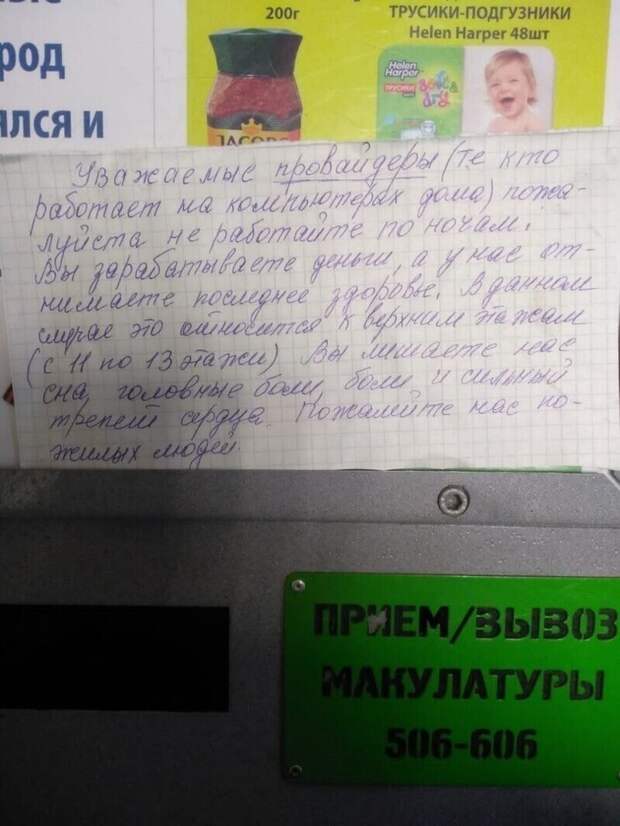 род
ялся и
200г
JACOBS
ТРУСИКИ-ПОДГУЗНИКИ
Helen Harper 48шт
Helen
Harper
ТРУСИКИ
soft &
dry
Уважаемые провайдеры (те кто
работает на компьютерах дома) пожа-
луйста не работайте по ночам.
Вы зарабатываете деньги, а у нас от-
нимаете последнее здоровье. В данном
случае это относится к верхним этажам
(с 11 по 13 этажи) Вы лишаете нас
сна, головные боли, боли и сильный
трепет сердца. Пожалейте нас по-
жилых людей.
ПРИЕМ/ВЫВОЗ
МАКУЛАТУРЫ
506-606